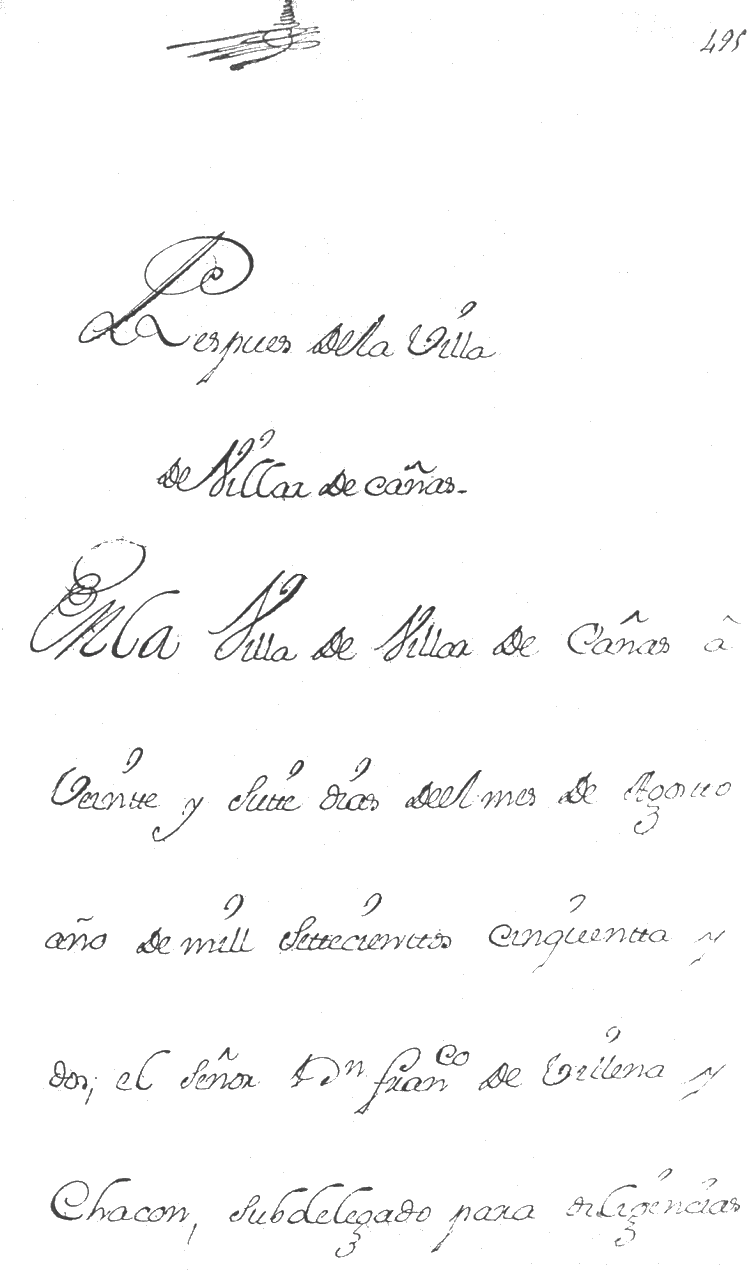 495
Respues dela Villa
de Villar de cañas.
En la Villa de Villar de Cañas â
Veintte y Siette dias deel mes de Agostto
año de mill Settecienttos cinquentta y
dos, el Señor Dn franco de Villena y
Chacon, subdelegado para diligencias